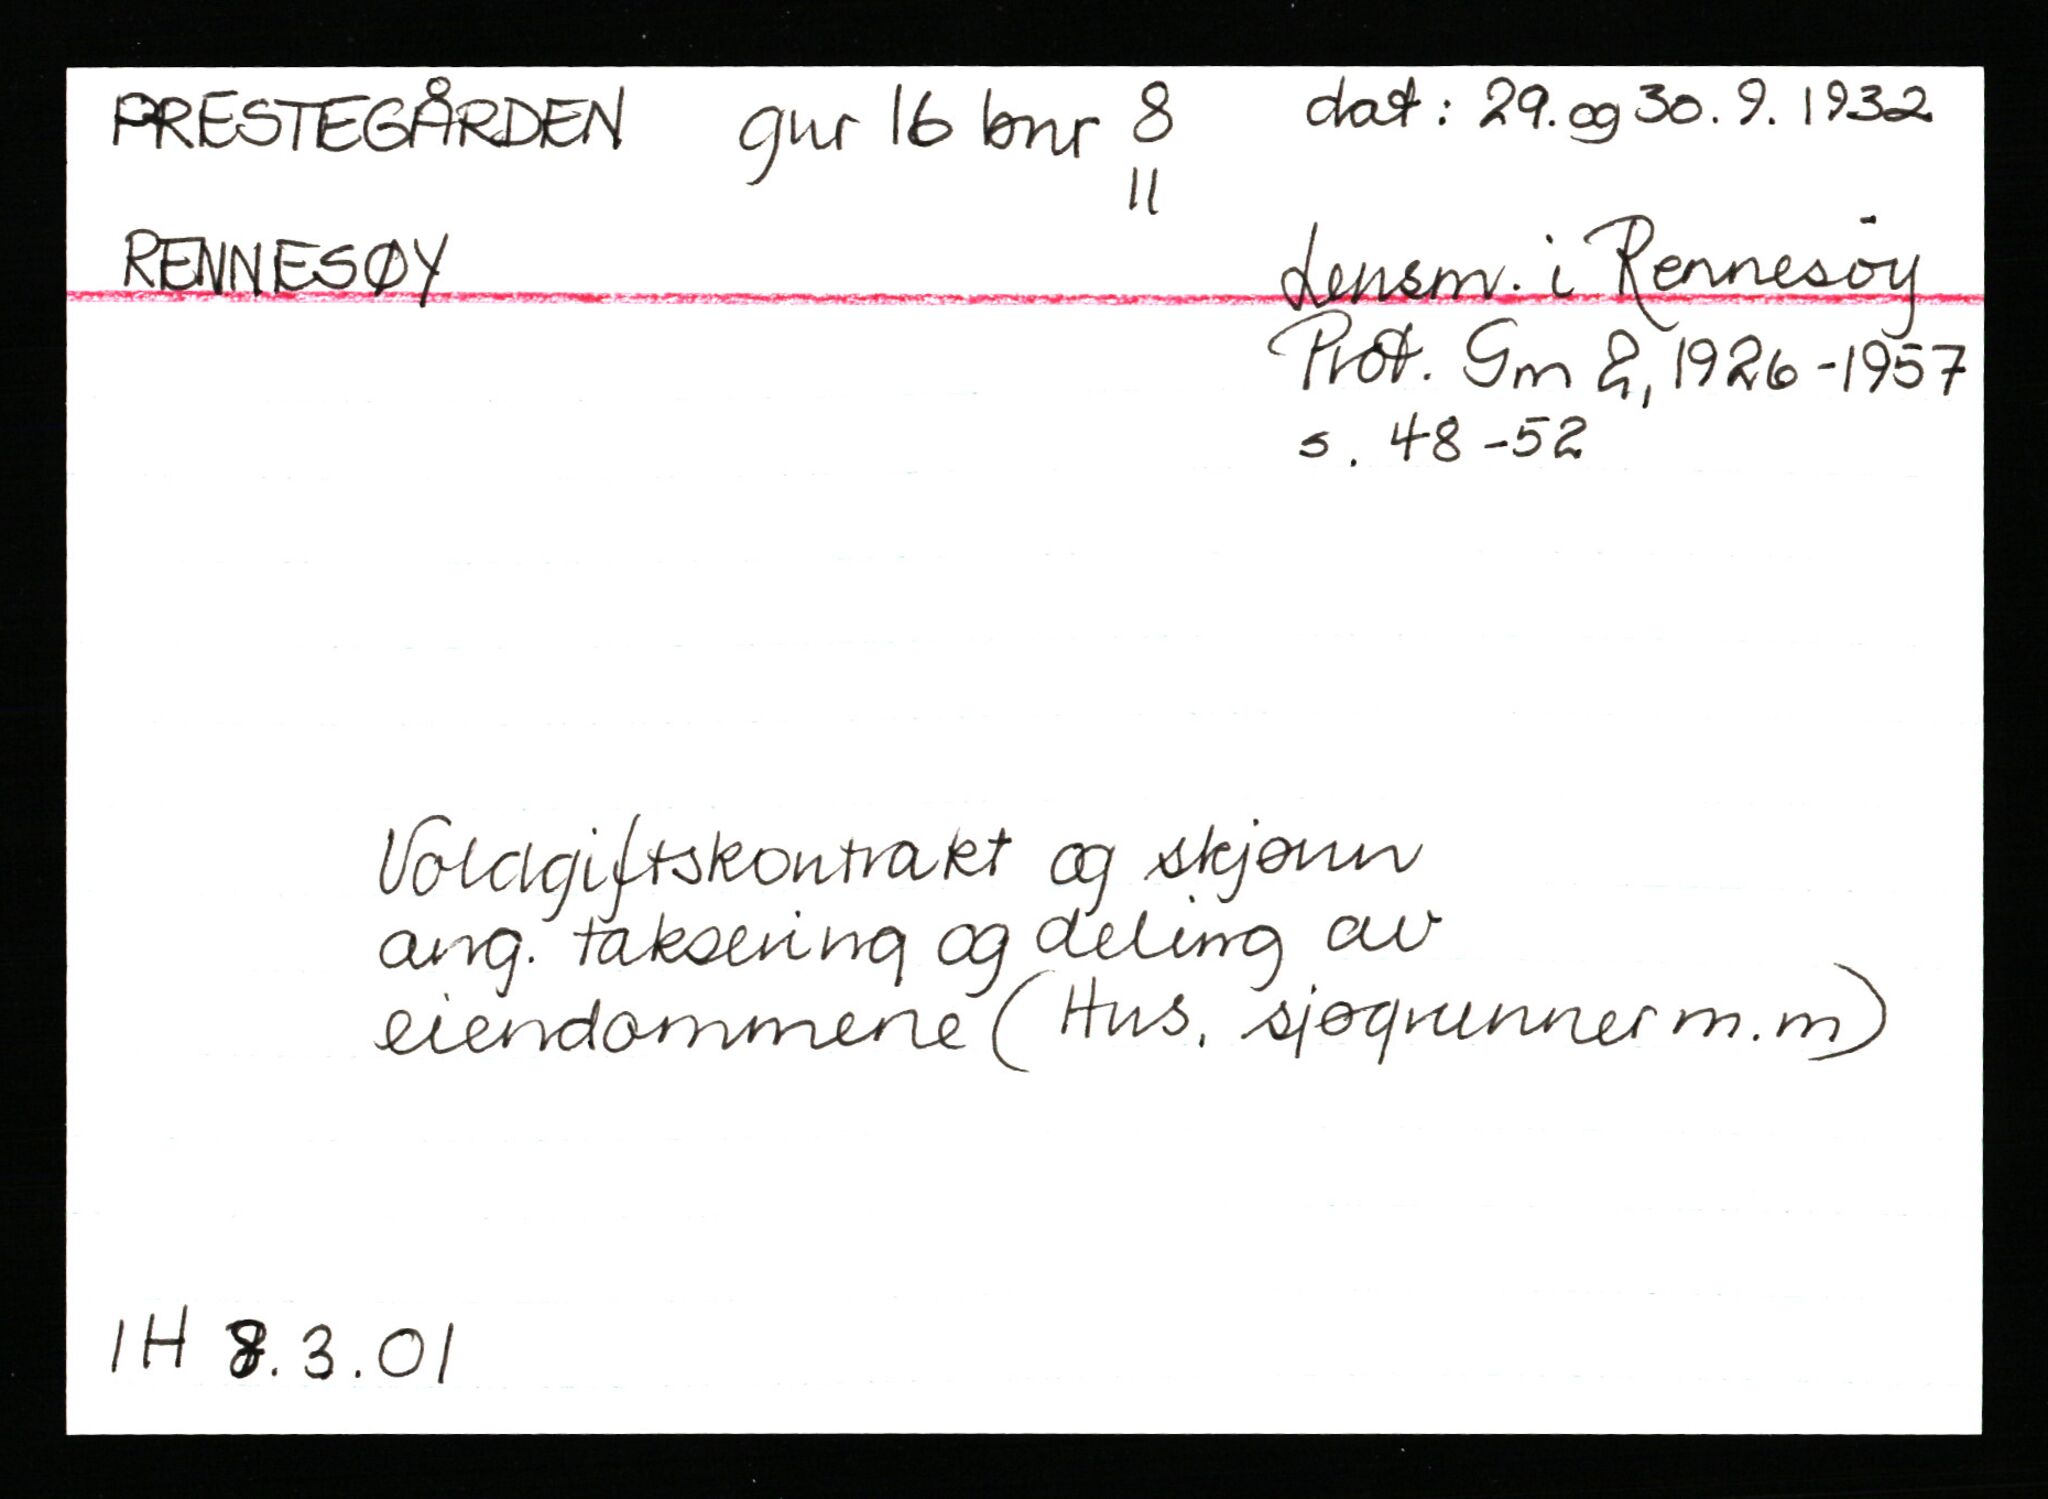 PRESTEGÅRDEN gnr 16 bnr 8 dat: 29. og 30. 9. 1932
11
RENNESØY Lensm. i Rennesøy
Prot. Gm 2, 1926-1957
s. 48-52
Voldgiftskontrakt og skjønn
ang. taksering og deling av
eiendommene (Hus, sjøgrunner m.m)
IH 8.3.01